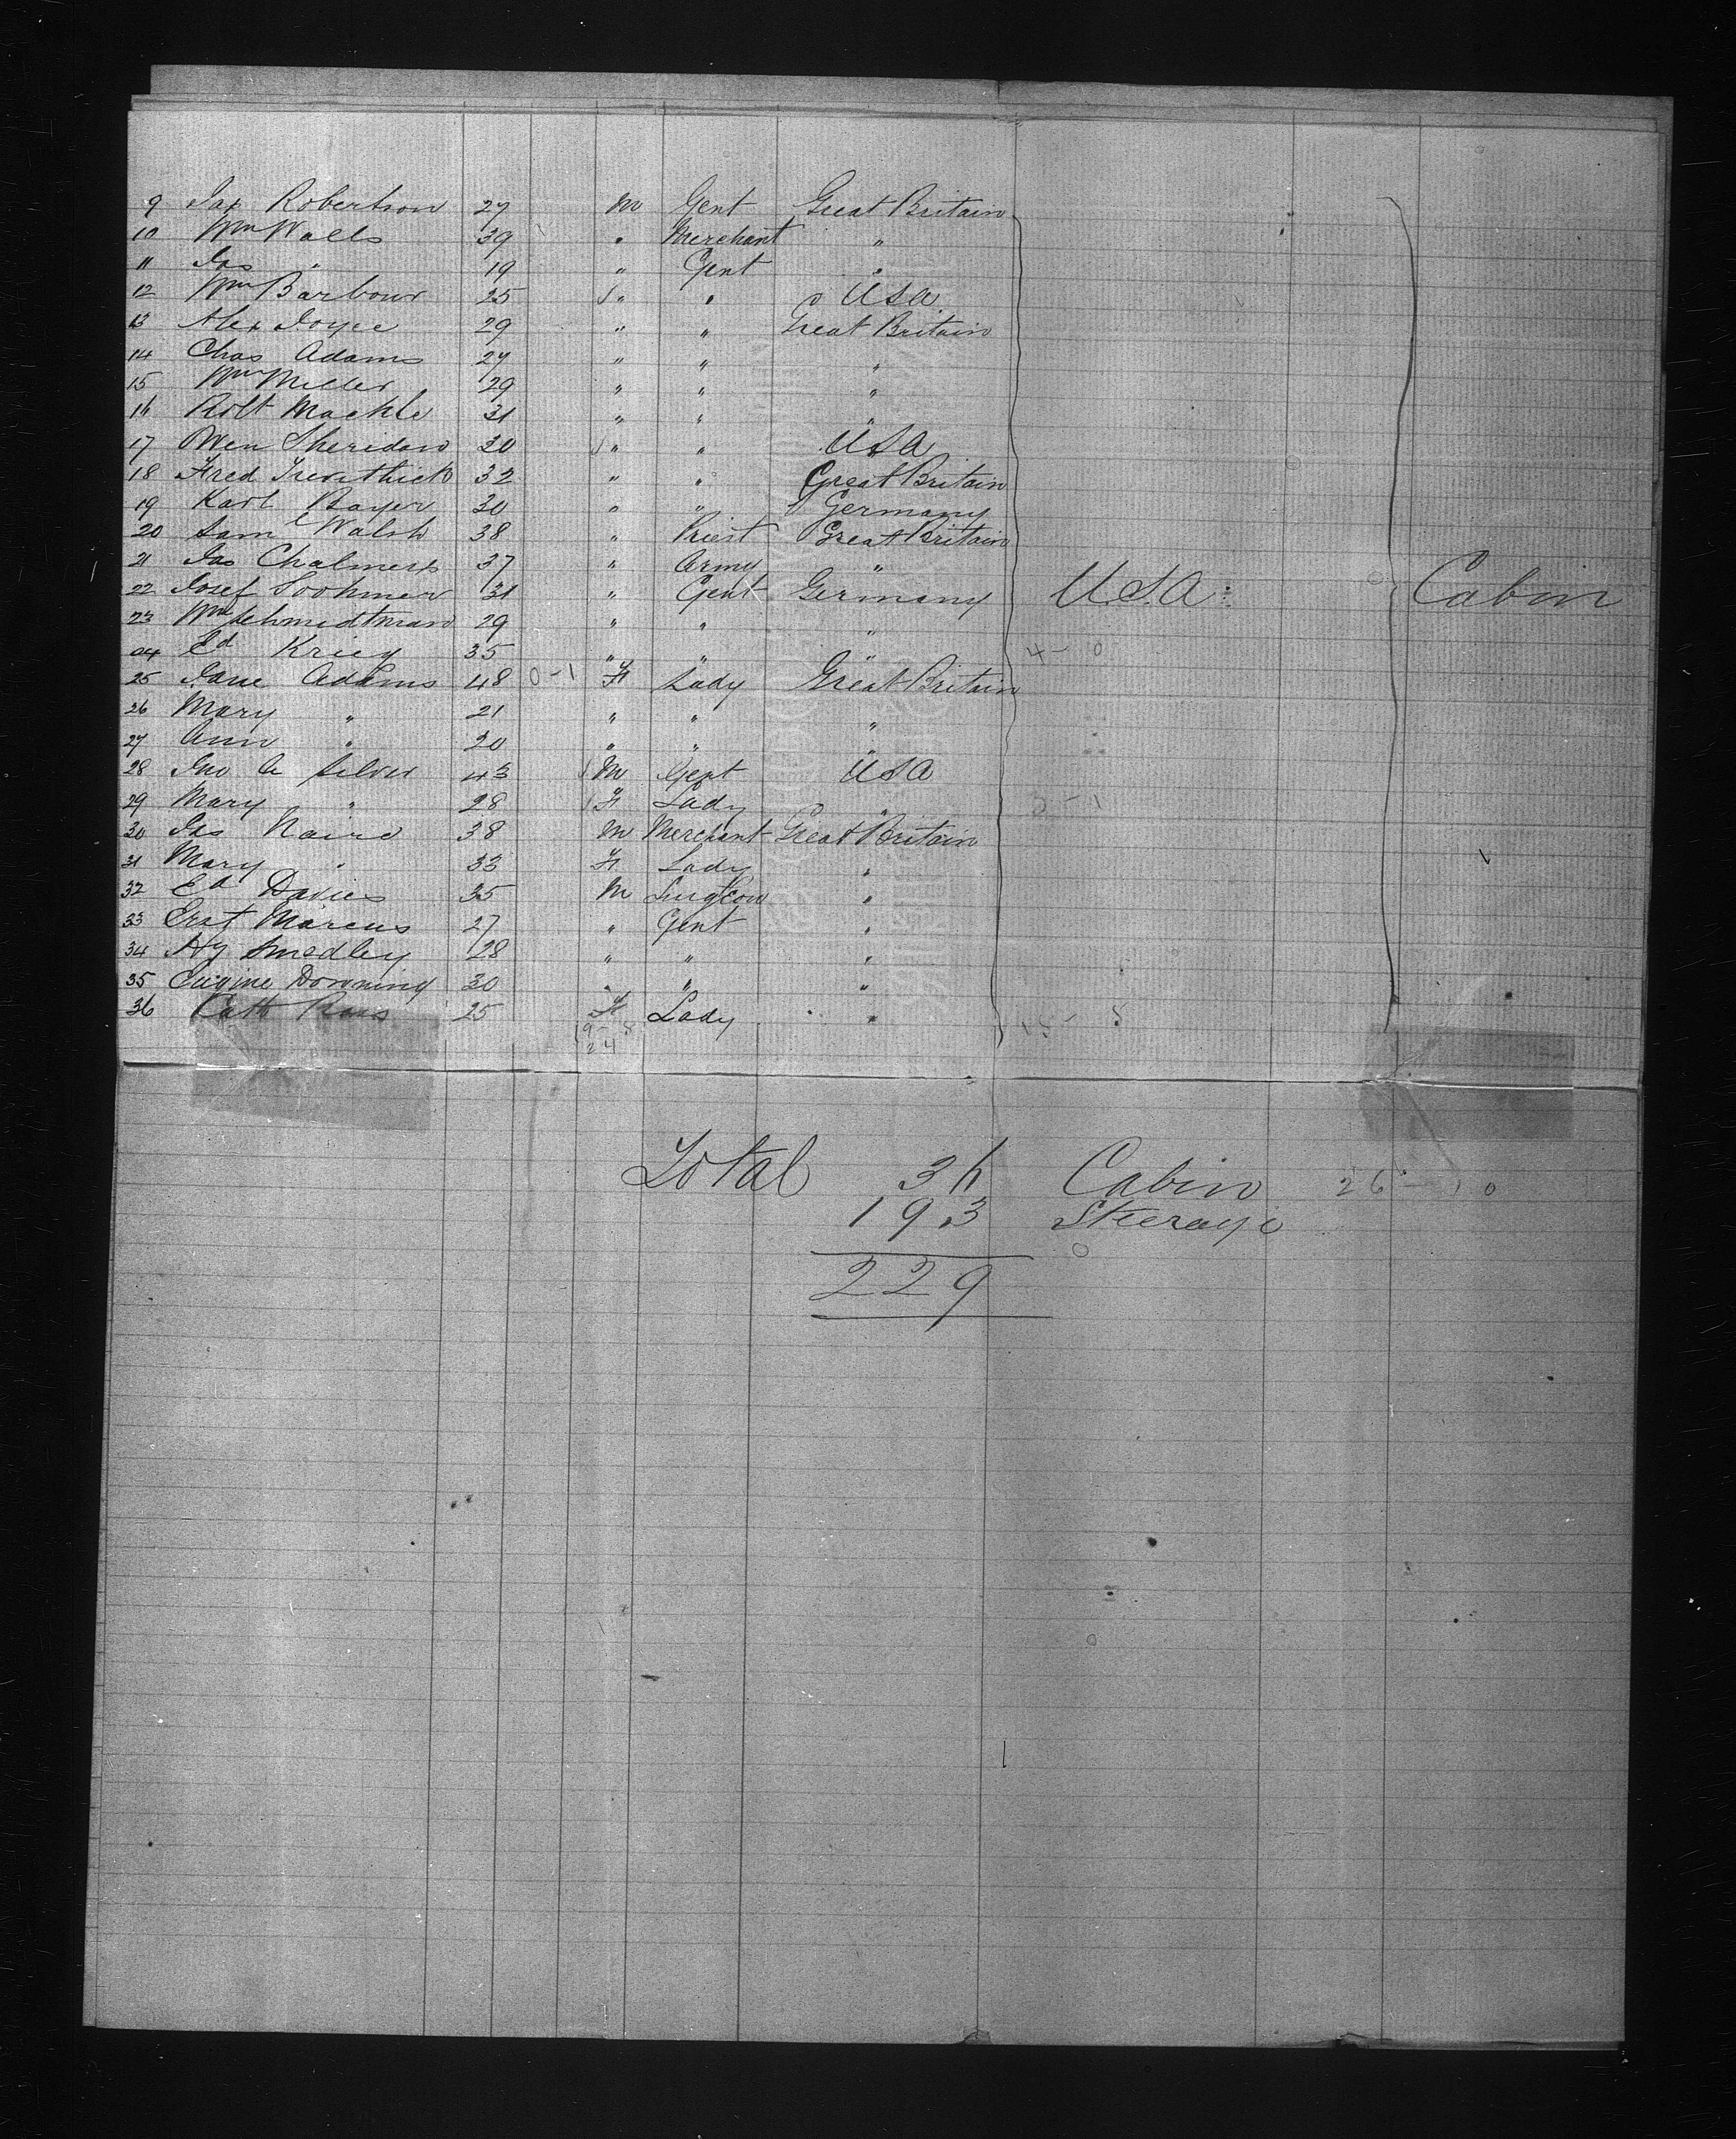 9 Jas Robertson 27 M Gent Great Britain
10 Wm Walls 39 " Merchant "
11 Jas " 19 " Gent "
12 Wm Barbour 25 " " USA
13 Alex Joyce 29 " " Great Britain
14 Chas Adams 27 " " "
15 Wm Miller 29 " " "
16 Robt Mackle 31 " " "
17 Owen Sheridan 30 " " USA
18 Fred Trevithick 32 " " Great Britain
19 Karl Bayer 30 " " Germany
20 Saml Walsh 38 " Priest Great Britain
21 Jas Chalmers 37 " Army "
22 Josef 31 " Gent Germany U.S.A. Cabin
23 Wm Schmidtman 29 " " "
24 Ed Krieg 35 " " " 4-0
25 Jane Adams 48 0-1 F Lady Great Britain
26 Mary " 21 " " "
27 Ann " 20 " " "
28 Jno A Silver 43 M Gent USA
29 Mary " 28 F Lady " 3-1
30 Jas Naird 38 M Merchant Great Britain
31 Mary " 33 F Lady "
32 Ed Davies 35 M Surgeon "
33 Erst Marcus 27 " Gent "
34 Hy Smedley 28 " " "
35 Eugine Downing 30 " " "
36 Kath Ross 25 F Lady "
19-8
24
Total 36 Cabin 26-10
193 Steerage
229